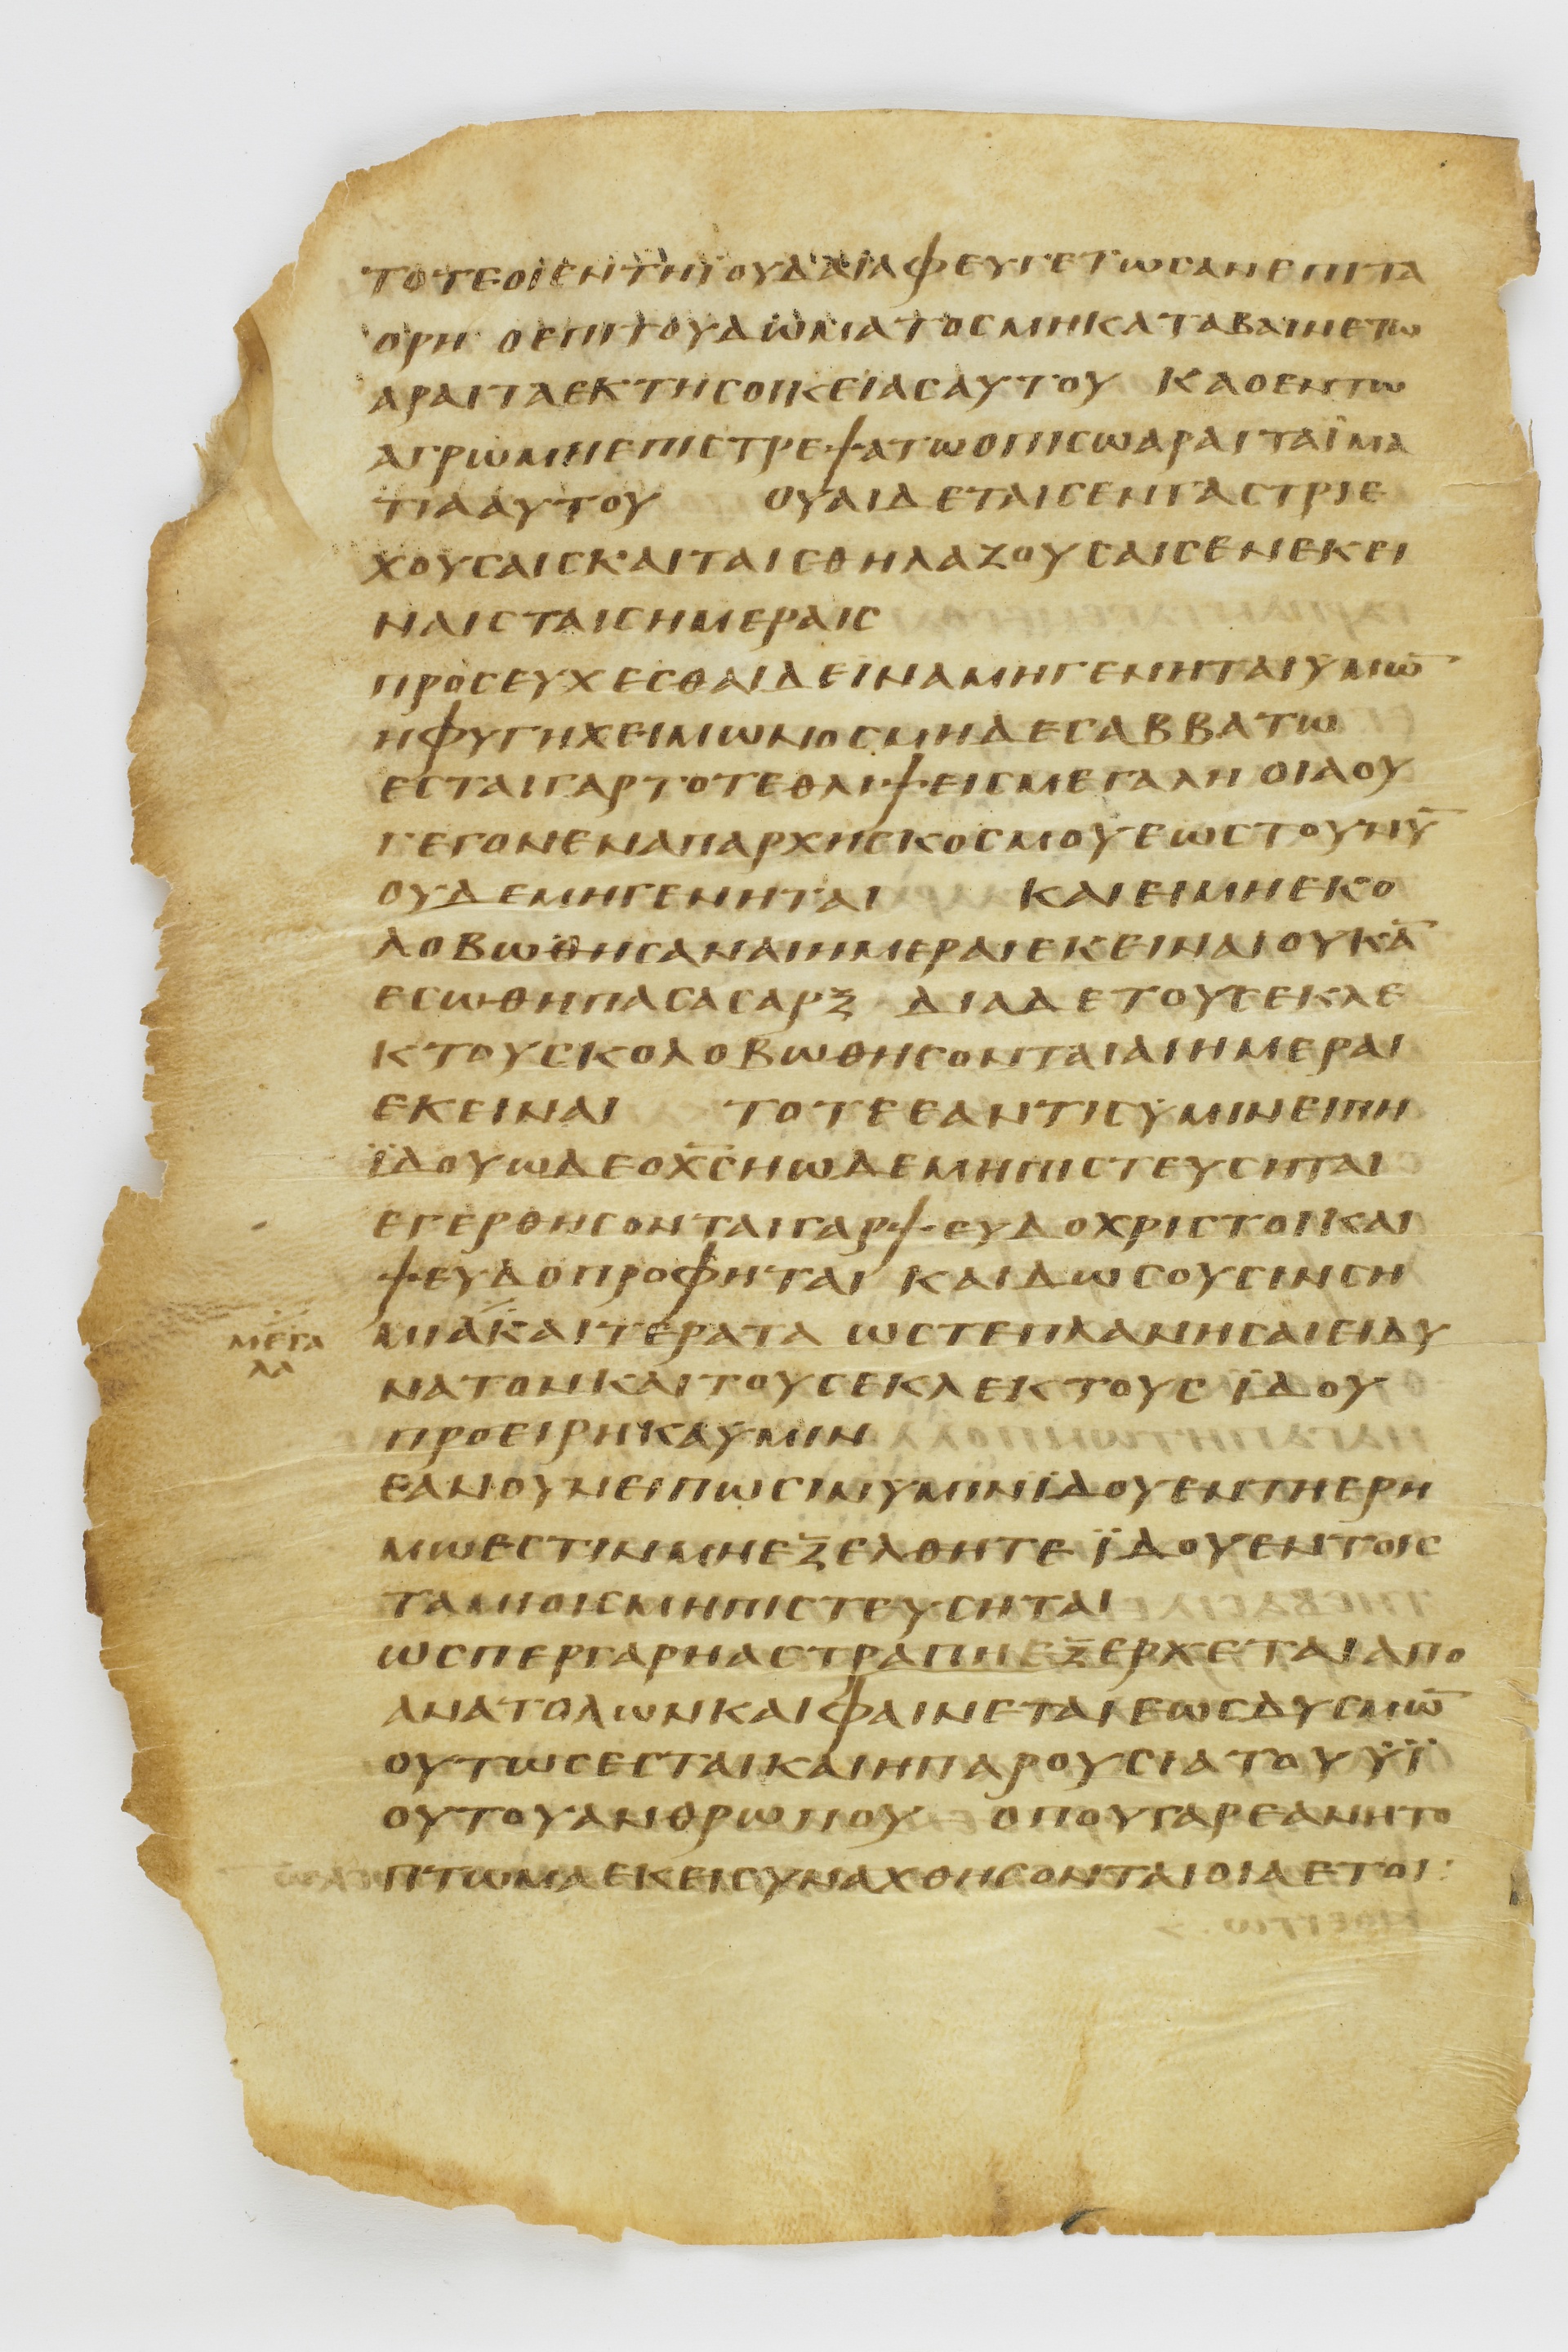 ΤΟΤΕΟΙΕΝΤΗΪΟΥΔΑΙΑΦΕΥΓΕΤΩCΑΝΕΠΙΤΑ
ΟΡΗ ΟΕΠΙΤΟΥΔΩΜΑΤΟCΜΗΚΑΤΑΒΑΙΝΕΤΩ
ΑΡΑΙΤΑΕΚΤΗCΟΙΚΕΙΑCΑΥΤΟΥ ΚΑΟΕΝΤΩ
ΑΓΡΩΜΗΕΠΙCΤΡΕΨΑΤΩΟΠΙCΩΑΡΑΙΤΑΪΜΑ
ΤΙΑΑΥΤΟΥ ΟΥΑΙΔΕΤΑΙCΕΝΓΑCΤΡΙΕ
ΧΟΥCΑΙCΚΑΙΤΑΙCΘΗΛΑΖΟΥCΑΙCΕΝΕΚΕΙ
ΝΑΙCΤΑΙCΗΜΕΡΑΙC
ΠΡΟCΕΥΧΕCΘΑΙΔΕΙΝΑΜΗΓΕΝΗΤΑΙΥΜΩ̅
ΗΦΥΓΗΧΕΙΜΩΝΟCΜΗΔΕCΑΒΒΑΤΩ
ΕCΤΑΙΓΑΡΤΟΤΕΘΛΙΨΕΙCΜΕΓΑΛΗ ΟΙΑΟΥ
ΓΕΓΟΝΕΝΑΠΑΡΧΗCΚΟCΜΟΥΕΩCΤΟΥΝΥ̅
ΟΥΔΕΜΗΓΕΝΗΤΑΙ ΚΑΙΕΙΜΗΕΚΟ
ΛΟΒΩΘΗCΑΝΑΙΗΜΕΡΑΙΕΚΕΙΝΑΙΟΥΚΑ̅
ΕCΩΘΗΠΑCΑCΑΡΞ ΔΙΑΔΕΤΟΥCΕΚΛΕ
ΚΤΟΥCΚΟΛΟΒΩΘΗCΟΝΤΑΙΑΙΗΜΕΡΑΙ
ΕΚΕΙΝΑΙ ΤΟΤΕΕΑΝΤΙCΥΜΙΝΕΙΠΗ
ΪΔΟΥΩΔΕΟΧ̅C̅ΗΩΔΕΜΗΠΙCΤΕΥCΗΤΑΙ
ΕΓΕΡΘΗCΟΝΤΑΙΓΑΡΨΕΥΔΟΧΡΙCΤΟΙΚΑΙ
ΨΕΥΔΟΠΡΟΦΗΤΑΙ ΚΑΙΔΩCΟΥCΙΝCΗ
ΜΕΓΑ
ΛΑ
ΜΙΑΚΑΙΤΕΡΑΤΑ ΩCΤΕΠΛΑΝΗCΑΙΕΙΔΥ
ΝΑΤΟΝΚΑΙΤΟΥCΕΚΛΕΚΤΟΥC ΪΔΟΥ
ΠΡΟΕΙΡΗΚΑΥΜΙΝ
ΕΑΝΟΥΝΕΙΠΩCΙΝΥΜΙΝΙΔΟΥΕΝΤΗΕΡΗ
ΜΩΕCΤΙΝΜΗΕΞΕΛΘΗΤΕ ΪΔΟΥΕΝΤΟΙC
ΤΑΜΙΟΙCΜΗΠΙCΤΕΥCΗΤΑΙ
ΩCΠΕΡΓΑΡΗΑCΤΡΑΠΗΕΞΕΡΧΕΤΑΙΑΠΟ
ΑΝΑΤΟΛΩΝΚΑΙΦΑΙΝΕΤΑΙΕΩCΔΥCΜΩ̅
ΟΥΤΩCΕCΤΑΙΚΑΙΗΠΑΡΟΥCΙΑΤΟΥΫΪ
ΟΥΤΟΥΑΝΘΡΩΠΟΥ ΟΠΟΥΓΑΡΕΑΝΗΤΟ
ΠΤΩΜΑΕΚΕΙCΥΝΑΧΘΗCΟΝΤΑΙΟΙΑΕΤΟΙ: